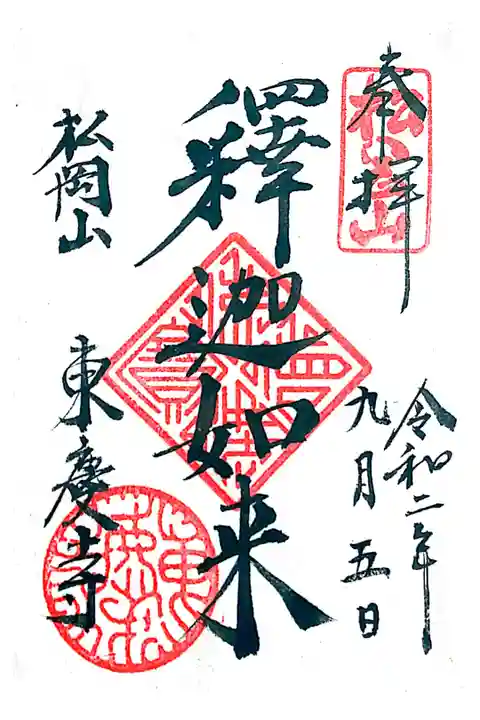 奉拝
松岡山
令和二年
九月五日
釋迦如来
松岡山
東慶寺